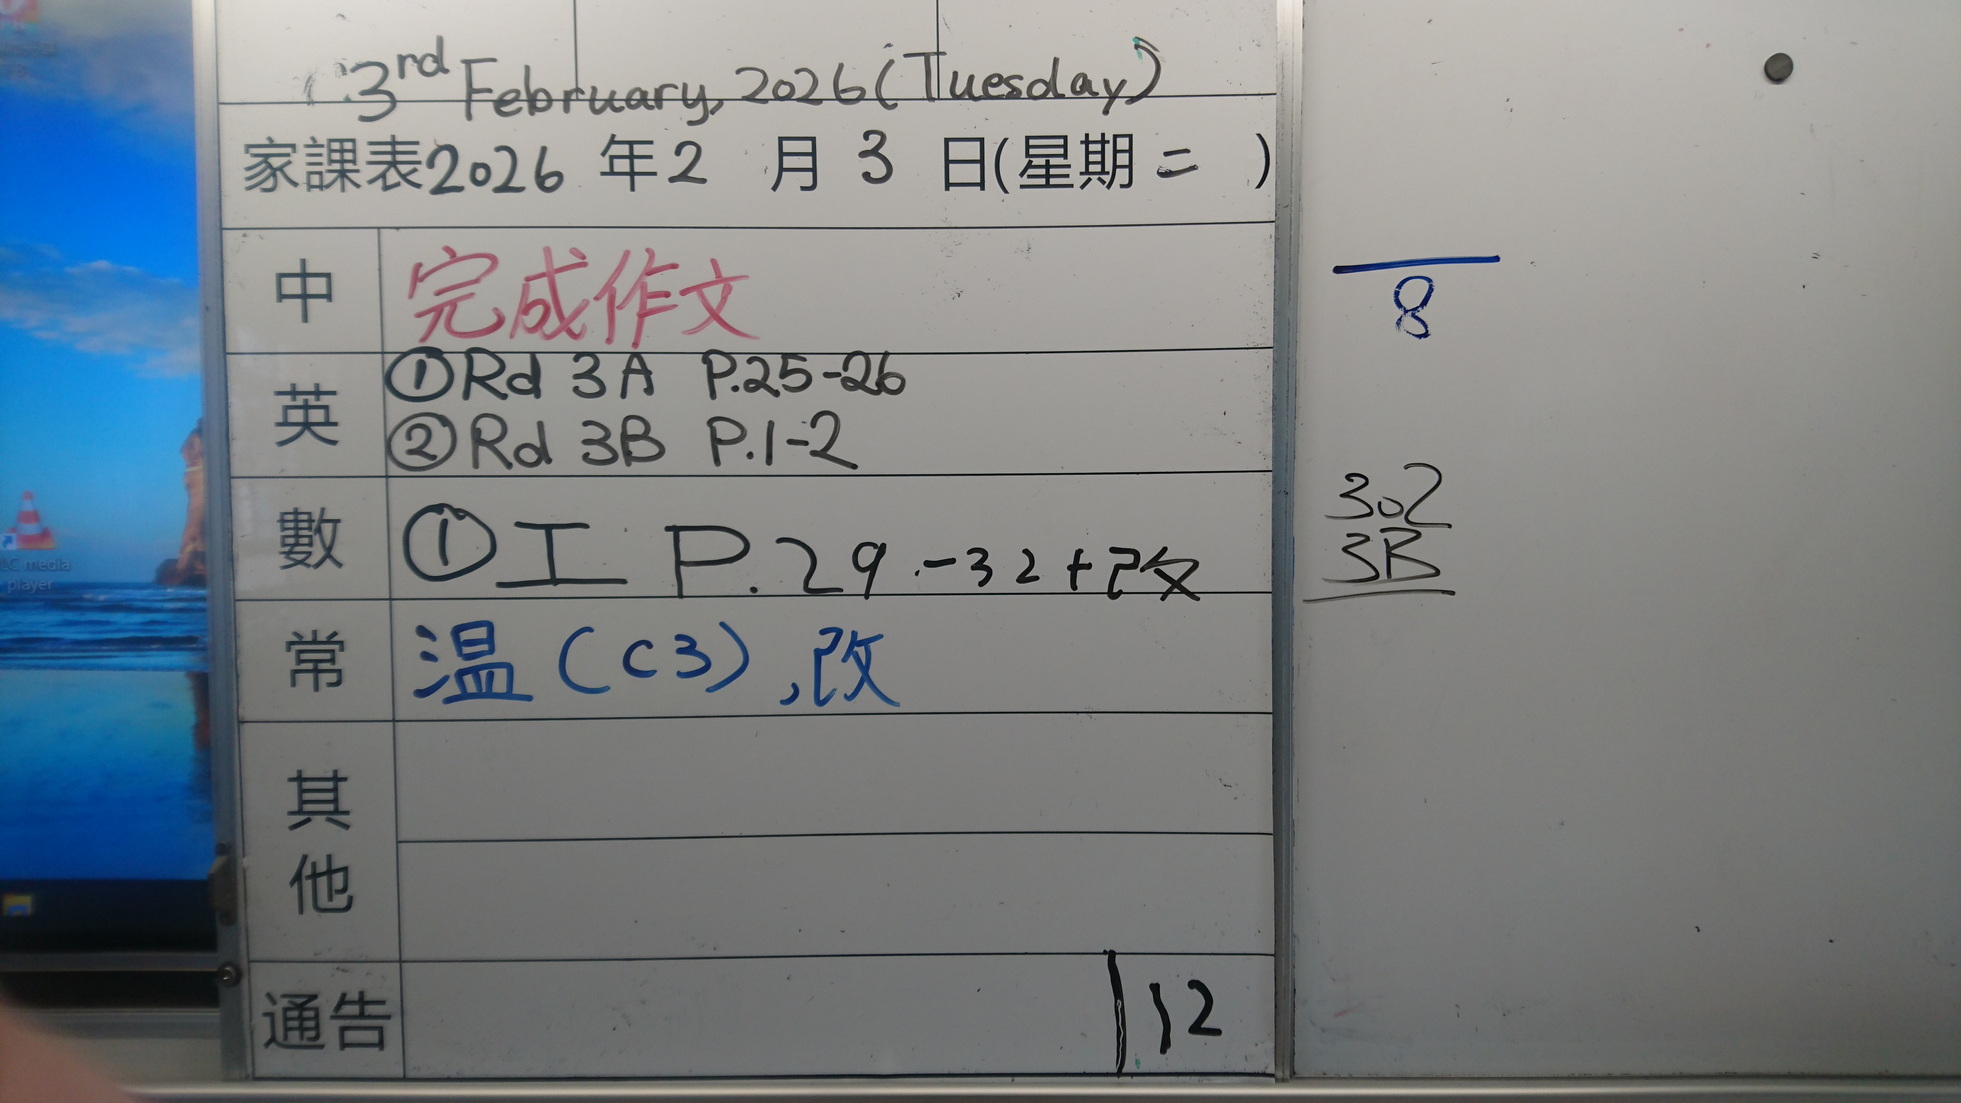 3rd February, 2026 (Tuesday)
家課表2026年2月3日(星期二)
中 完成作文
英 ①Rd 3A P.25-26
②Rd 3B P.1-2
數 ①工 P.29-32+改
常 温(C3),改
其他
通告 12
8
302
3B
LC media
player